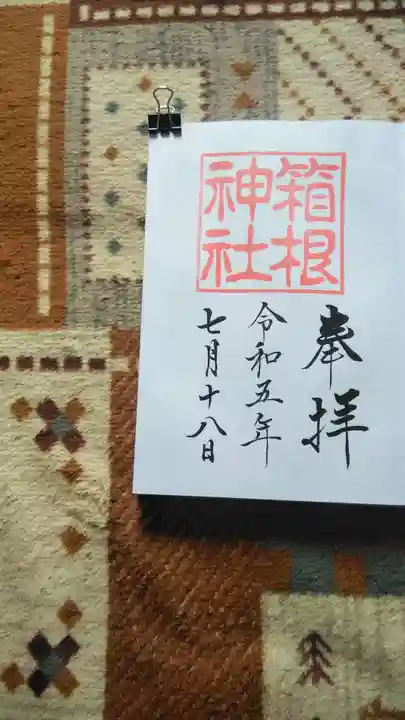 箱根
神社
奉拝
令和五年
七月十八日